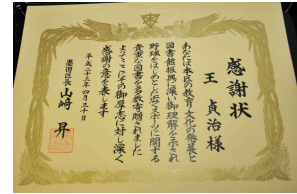 感謝状
王 貞治 様
あなたは本区の教育・文化の発展と
図書館振興に深い御理解を示され
野球をはじめとしたスポーツに関する
貴重な図書を多数寄贈されました
よってここにその御厚志に対し深く
感謝の意を表します
平成二十三年四月三十日
墨田区長 山﨑 昇